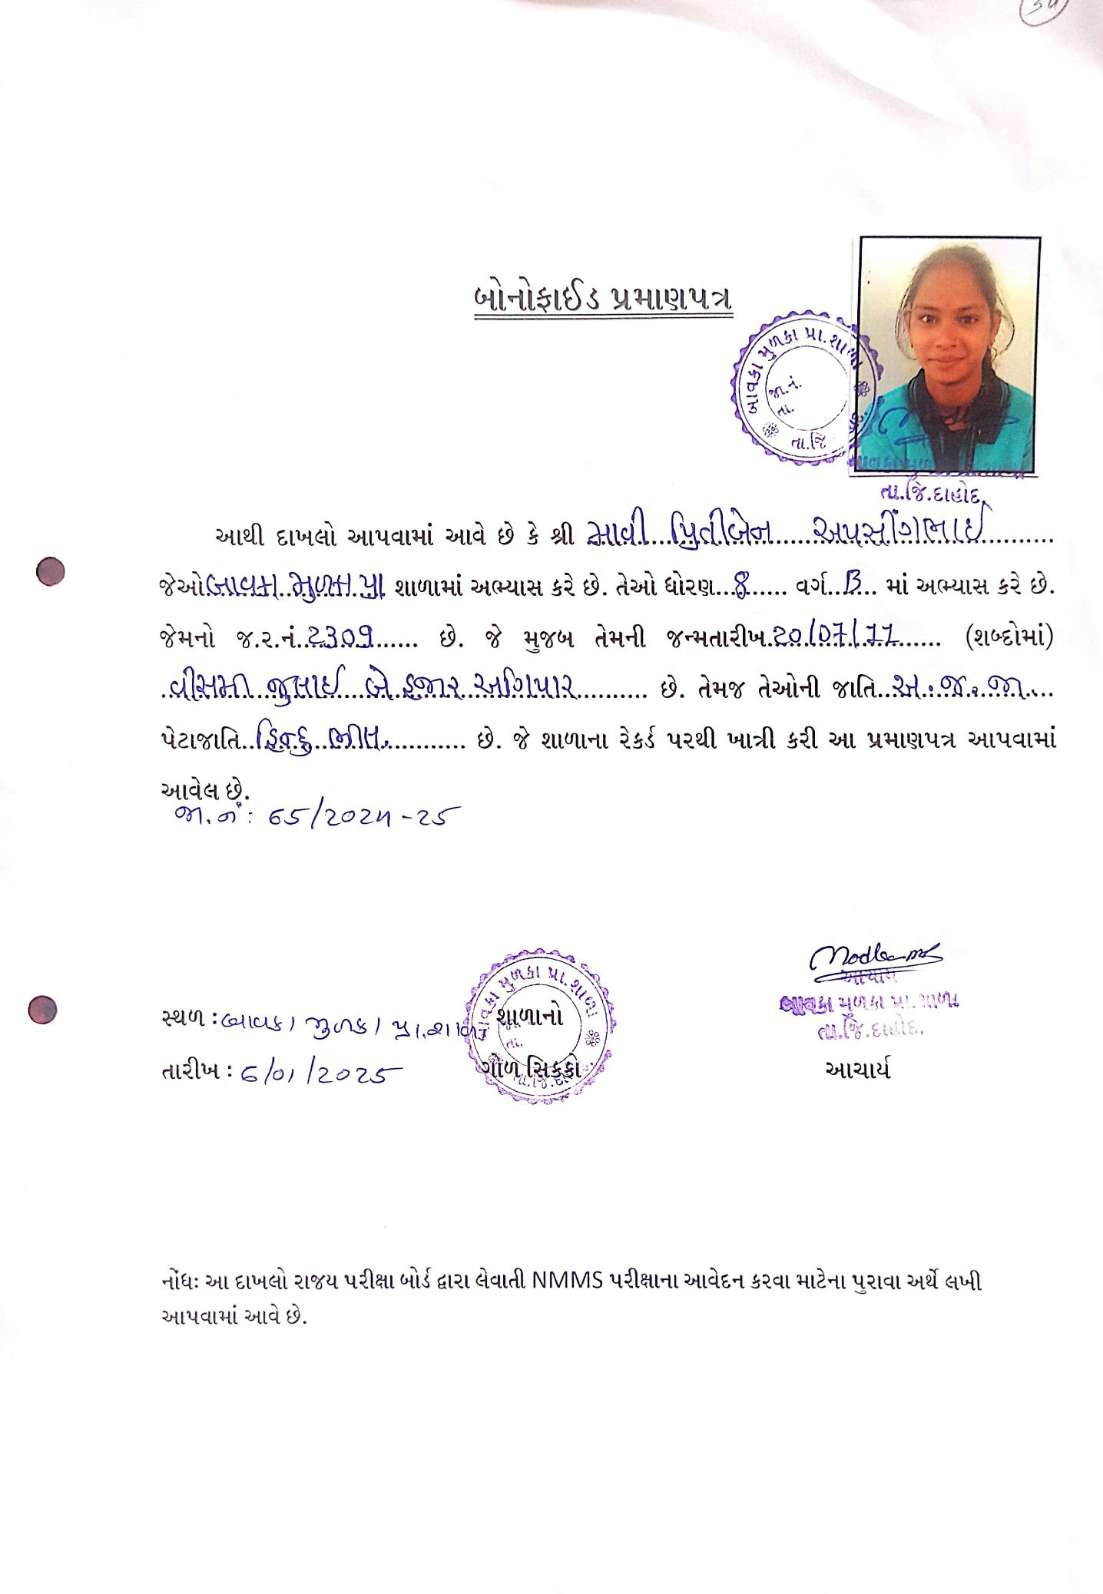 ૩૫
બોનોફાઈડ પ્રમાણપત્ર
બાવકા મુળકા પ્રા.શાળા
જા.નં.
તા.
તા.જિ
તા.જિ.દાહોદ.
આથી દાખલો આપવામાં આવે છે કે શ્રી માવી પ્રિતીબેન અપસીંગભાઈ
જેઓ બાવકા મુળકા પ્રા શાળામાં અભ્યાસ કરે છે. તેઓ ધોરણ...8..... વર્ગ..B.. માં અભ્યાસ કરે છે.
જેમનો જ.ર.નં.2309...... છે. જે મુજબ તેમની જન્મતારીખ.20/07/11...... (શબ્દોમાં)
વીસમી જુલાઈ બે હજાર અગિયાર.......... છે. તેમજ તેઓની જાતિ..અ.જ.જા....
પેટાજાતિ..હિન્દુ ભીલ............ છે. જે શાળાના રેકર્ડ પરથી ખાત્રી કરી આ પ્રમાણપત્ર આપવામાં
આવેલ છે.
જા.નં: 65/2024-25
આચાર્ય
બાવકા મુળકા પ્રા.શાળા
તા.જિ.દાહોદ.
સ્થળ : બાવકા મુળકા પ્રા.શાળા શાળાનો
તારીખ : 6/01/2025 ગોળ સિક્કો આચાર્ય
નોંધઃ આ દાખલો રાજય પરીક્ષા બોર્ડ દ્વારા લેવાતી NMMS પરીક્ષાના આવેદન કરવા માટેના પુરાવા અર્થે લખી
આપવામાં આવે છે.